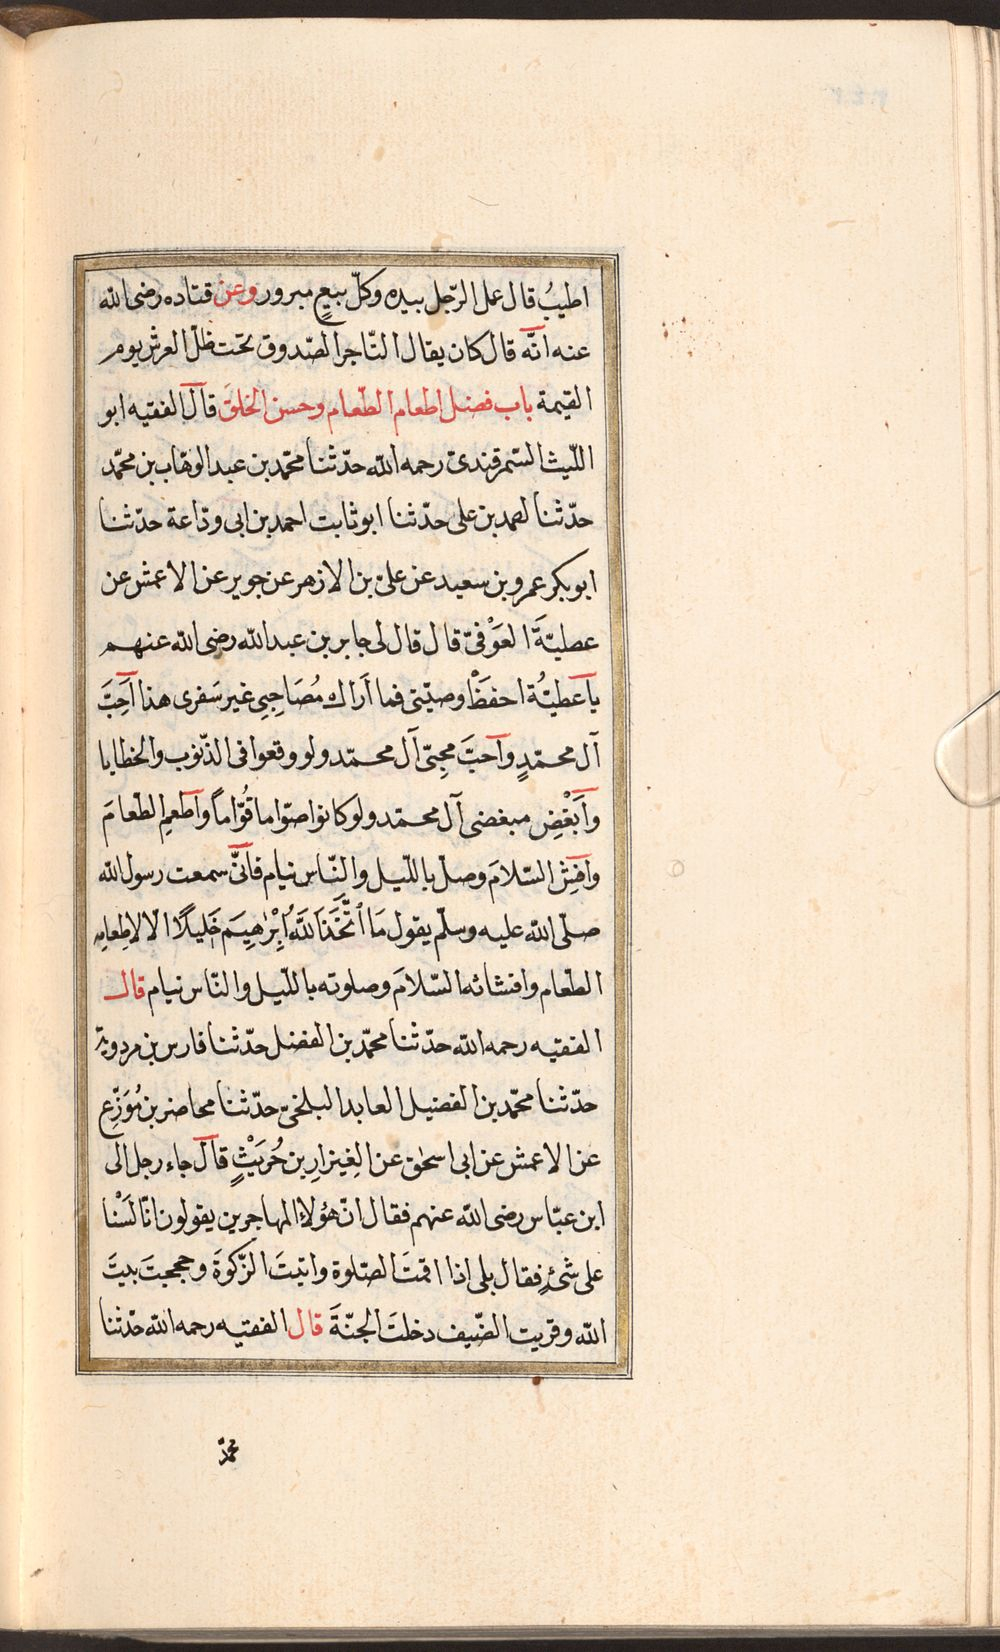 اطيبُ قال عمل الرّجل بيده وكلّ بيعٍ مبرور وعن قتاده رضى الله
عنه انّه قال كان يقال التّاجر الصّدوق تحت ظلّ العرش يوم
القيمة باب فضل اطعام الطّعام وحسن الخلق قال الفقيه ابو
اللّيث السّمرقندىّ رحمه الله حدّثنا محمّد بن عبد الوهّاب بن محمّد
حدّثنا لصمد بن على حدّثنا ابو ثابت احمد بن ابى ودّاعة حدّثنا
ابو بكر عمرو بن سعيد عن علىّ بن الازهر عن جوير عن الاعمش عن
عطيّةَ العَوْفىّ قال قال لى جابر بن عبد الله رضى الله عنهم
يا عطيّةُ احفَظْ وصيّتى فما اَراك مُصَاحِبِى غير سَفرى هذا اَحِبَّ
آل محمّدٍ واَحبَّ محِبّى آل محمّد ولو وقعوا فى الذّنوب والخطايا
واَبْغِض مبغضى آل محمّد ولو كانوا صوّاما قُوّاماً واَطعمِ الطّعامَ
وافشِ السّلامَ وصلّ باللّيل والنّاس نيام فانّى سمعت رسول الله
صلّى الله عليه وسلّم يقول مَا ٱتَّخَذَ اللَّهُ اِبْرٰهِيمَ خَلِيلًا الّا لاِطعامِه
الطّعام وافشائه السّلامَ وصلوته باللّيل والنّاس نيام قال
الفقيه رحمه الله حدّثنا محمّد بن الفضل حدّثنا فارس بن مردويه
حدّثنا محمّد بن الفضيل العابد البلخىّ حدّثنا محاضر بن مُوَزِّع
عن الاعمش عن ابى اسحٰق عن الغيزارِ بن حُرَيْثٍ قال جاء رجل الى
ابن عبّاس رضى الله عنهم فقال انّ هؤلاء المهاجرين يقولون انّا لَسْنا
على شئٍ فقال بلى اذا اقمتَ الصّلوة واتيتَ الزّكوةَ وحججتَ بيتَ
الله وقريت الضّيف دخلتَ الجنّةَ قال الفقيه رحمه الله حدّثنا
محمّد